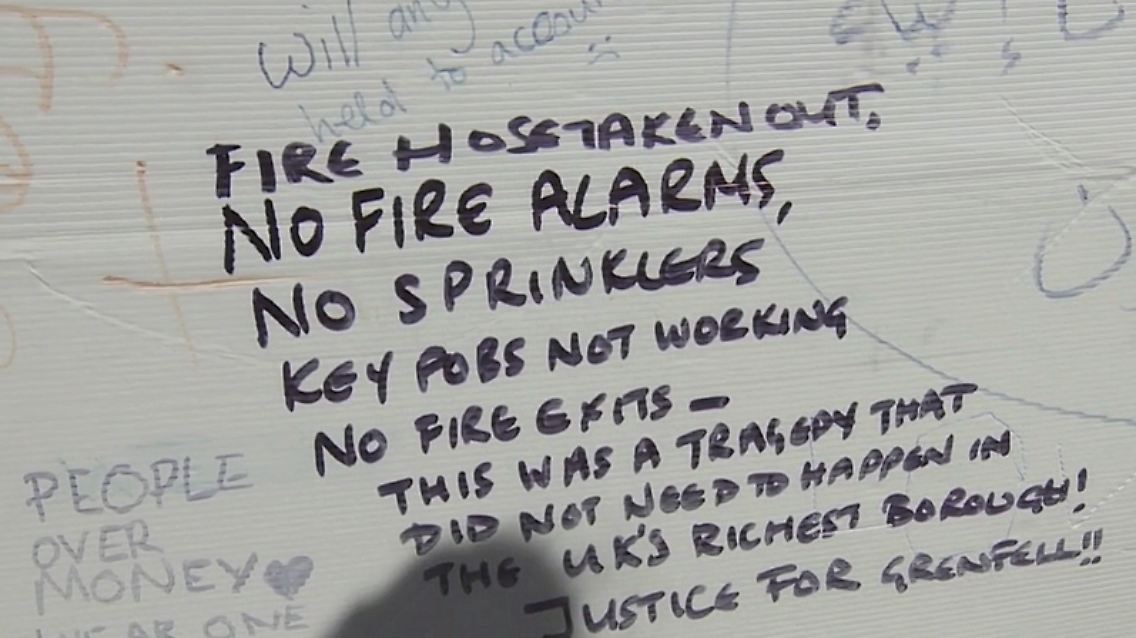 Will any
held to accoun
FIRE HOSE TAKEN OUT,
NO FIRE ALARMS,
NO SPRINKLERS
KEY FOBS NOT WORKING
NO FIRE EXITS –
THIS WAS A TRAGEDY THAT
DID NOT NEED TO HAPPEN IN
THE UK'S RICHEST BOROUGH!
JUSTICE FOR GRENFELL!!
PEOPLE
OVER
MONEY
ONE